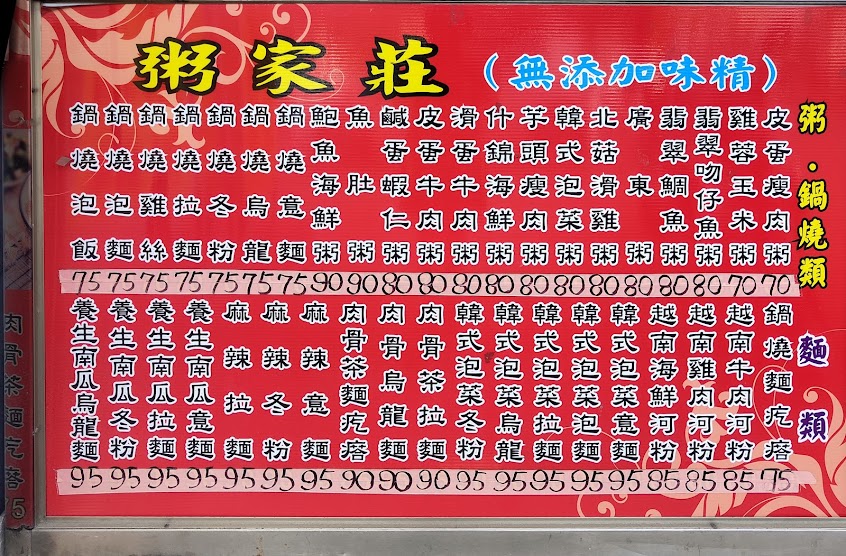 粥家莊
(無添加味精)
粥·鍋燒類
皮蛋瘦肉粥 70
雞蓉玉米粥 70
翡翠吻仔魚粥 80
翡翠鯛魚粥 80
廣東粥 80
北菇滑雞粥 80
韓式泡菜粥 80
芋頭瘦肉粥 80
什錦海鮮粥 80
滑蛋牛肉粥 80
皮蛋牛肉粥 80
鹹蛋蝦仁粥 80
魚肚粥 90
鮑魚海鮮粥 90
鍋燒意麵 75
鍋燒烏龍 75
鍋燒冬粉 75
鍋燒拉麵 75
鍋燒雞絲 75
鍋燒泡麵 75
鍋燒泡飯 75
麵類
鍋燒麵疙瘩 75
越南牛肉河粉 85
越南雞肉河粉 85
越南海鮮河粉 85
韓式泡菜意麵 95
韓式泡菜泡麵 95
韓式泡菜拉麵 95
韓式泡菜烏龍 95
韓式泡菜冬粉 95
肉骨茶拉麵 90
肉骨烏龍麵 90
肉骨茶麵疙瘩 90
麻辣意麵 95
麻辣冬粉 95
麻辣拉麵 95
養生南瓜意麵 95
養生南瓜拉麵 95
養生南瓜冬粉 95
養生南瓜烏龍麵 95
肉骨茶麵疙瘩 5